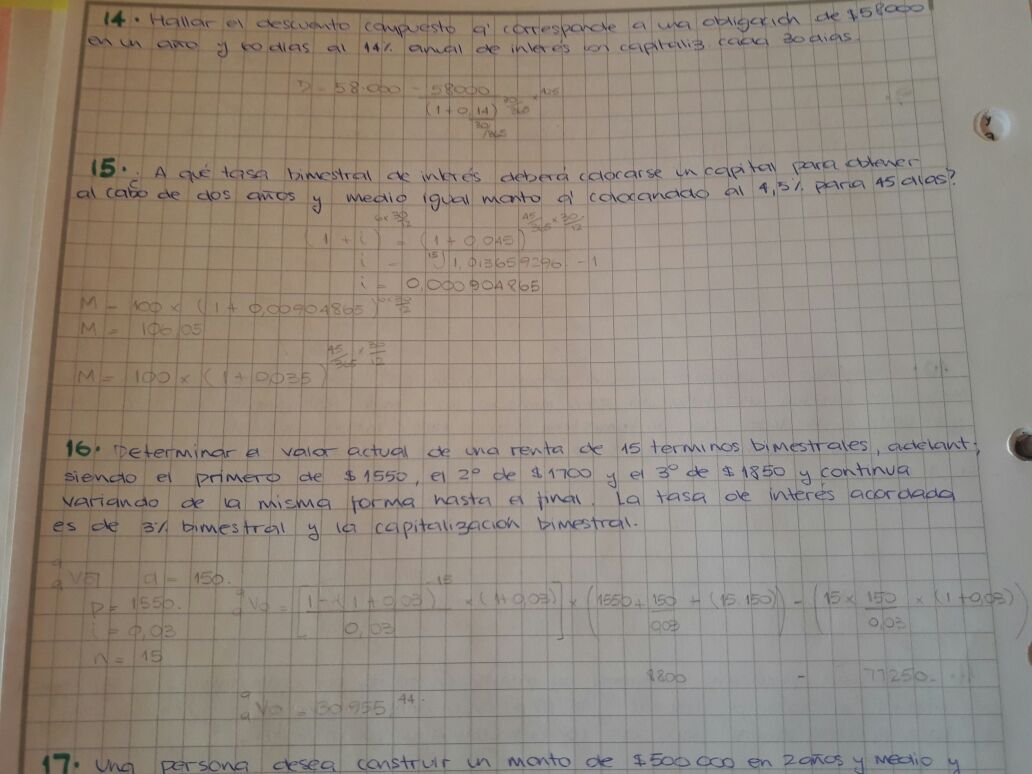 14. Hallar el descuento compuesto q' corresponde a una obligación de $58000
en un año y 60 días al 14% anual de interés con capitaliz. cada 30 dias.
D = 58.000 - 58000
(1+0,14) 30/365 × 425
30/365
15. A qué tasa bimestral de interés deberá colocarse un capital para obtener
al cabo de dos años y medio igual monto q' colocandolo al 4,5% para 45 dias?
(1 + i) 6×30/12 = (1 + 0,045) 45/365 × 30/12
i = 15√1,013659296 - 1
i = 0,000904865
M = 100 × (1 + 0,00904865) 6×30/12
M = 106,05
M = 100 × (1 + 0,035) 45/365 × 30/12
16. Determinar el valor actual de una renta de 15 terminos bimestrales, adelant;
siendo el primero de $1550, el 2º de $1700 y el 3º de $1850 y continua
variando de la misma forma hasta el final. La tasa de interés acordada
es de 3% bimestral y la capitalización bimestral.
d = 150.
p = 1550. Va = [1-(1+0,03)-15 × (1+0,03)] × (1550 + 150 + (15.150)) - (15 × 150 × (1+0,03))
i = 0,03 0,03 0,03 0,03
n = 15
8800 - 77250.
Va = 30.955,44.
17. Una persona desea construir un monto de $500 000 en 2 años y medio y